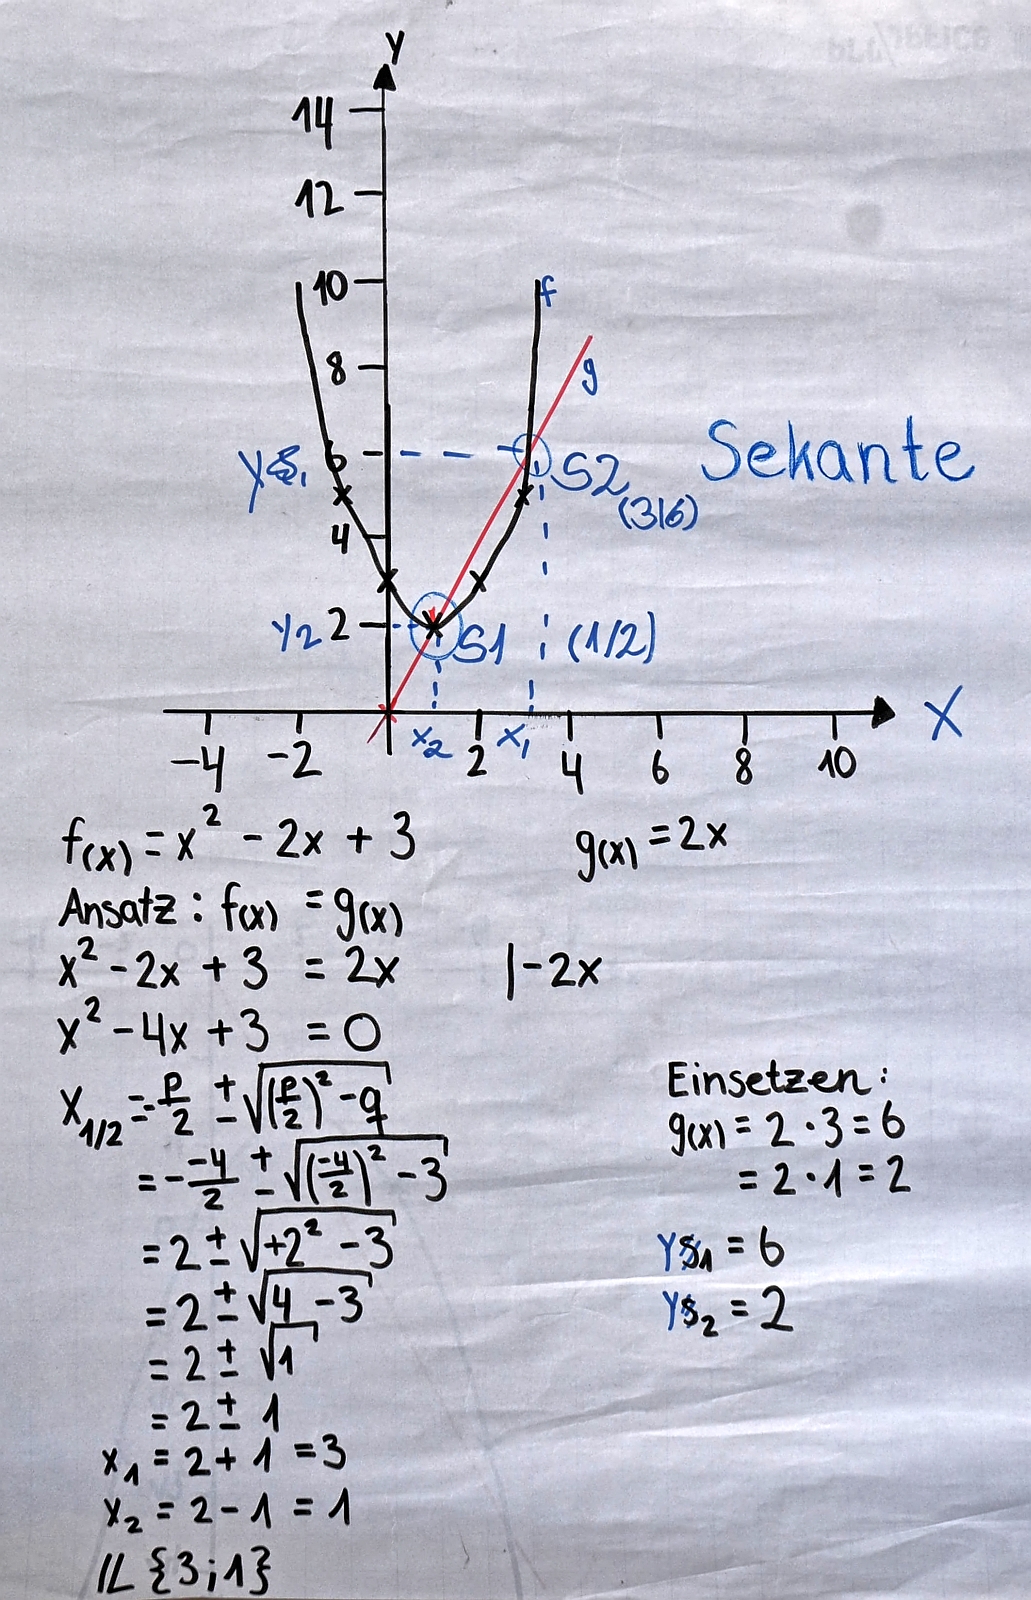 y
14
12
10
f
8
g
y S1
6
Sekante
S2
(3|6)
4
y2
2
S1
(1/2)
x2
x1
X
-4
-2
2
4
6
8
10
f(x) = x² - 2x + 3
g(x) = 2x
Ansatz: f(x) = g(x)
x² - 2x + 3 = 2x |-2x
x² - 4x + 3 = 0
x1/2 = -p/2 ± √((p/2)² - q)
= - -4/2 ± √((-4/2)² - 3)
= 2 ± √(+2² - 3)
= 2 ± √(4 - 3)
= 2 ± √1
= 2 ± 1
x1 = 2 + 1 = 3
x2 = 2 - 1 = 1
𝕃 {3;1}
Einsetzen:
g(x) = 2 · 3 = 6
= 2 · 1 = 2
yS1 = 6
yS2 = 2